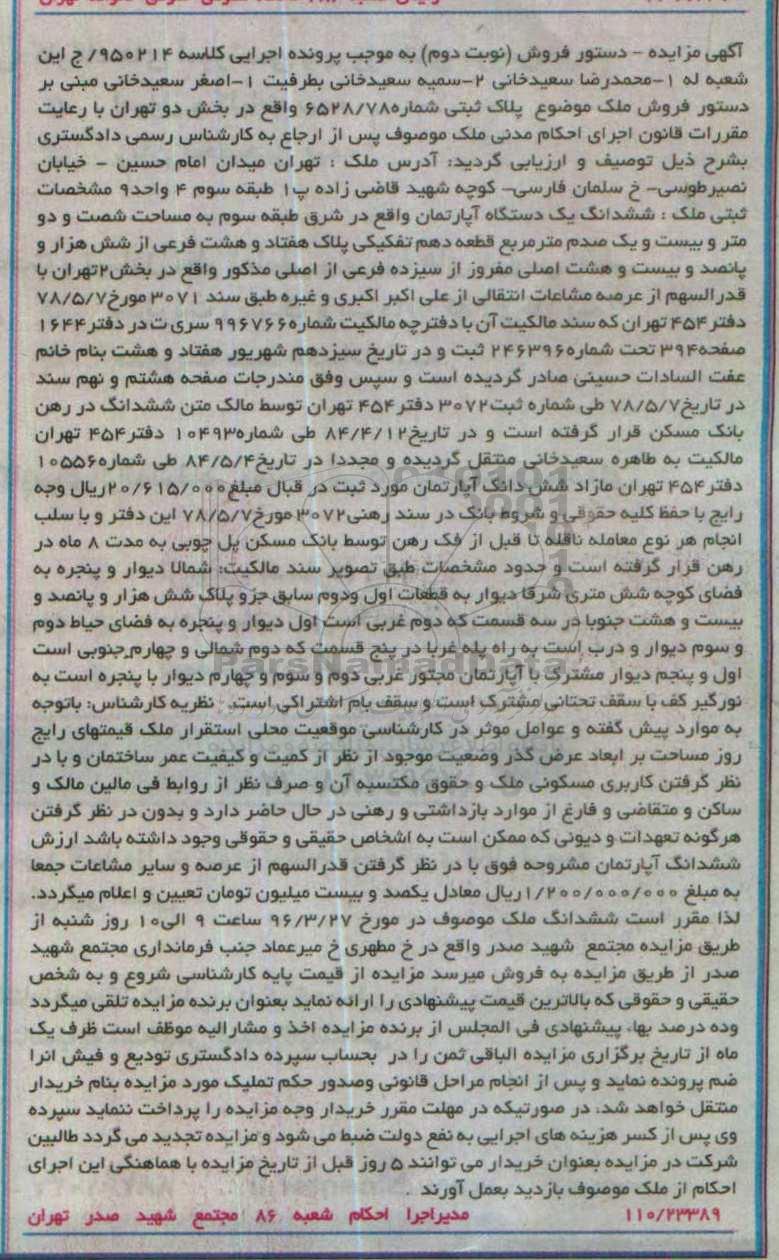 آگهی مزایده - دستور فروش (نوبت دوم) به موجب پرونده اجرایی کلاسه ۹۵۰۲۱۴/ ج این
شعبه له ۱-محمدرضا سعیدخانی ۲-سمیه سعیدخانی بطرفیت ۱-اصغر سعیدخانی مبنی بر
دستور فروش ملک موضوع پلاک ثبتی شماره۶۵۲۸/۷۸ واقع در بخش دو تهران با رعایت
مقررات قانون اجرای احکام مدنی ملک موصوف پس از ارجاع به کارشناس رسمی دادگستری
بشرح ذیل توصیف و ارزیابی گردید: آدرس ملک : تهران میدان امام حسین - خیابان
نصیرطوسی- خ سلمان فارسی- کوچه شهید قاضی زاده پ۱ طبقه سوم ۴ واحد۹ مشخصات
ثبتی ملک : ششدانگ یک دستگاه آپارتمان واقع در شرق طبقه سوم به مساحت شصت و دو
متر و بیست و یک صدم مترمربع قطعه دهم تفکیکی پلاک هفتاد و هشت فرعی از شش هزار و
پانصد و بیست و هشت اصلی مفروز از سیزده فرعی از اصلی مذکور واقع در بخش۲تهران با
قدرالسهم از عرصه مشاعات انتقالی از علی اکبر اکبری و غیره طبق سند ۳۰۷۱ مورخ۷۸/۵/۷
دفتر۴۵۴ تهران که سند مالکیت آن با دفترچه مالکیت شماره۹۹۶۷۶۶ سری ت در دفتر۱۶۴۴
صفحه۳۹۴ تحت شماره۲۴۶۳۹۶ ثبت و در تاریخ سیزدهم شهریور هفتاد و هشت بنام خانم
عفت السادات حسینی صادر گردیده است و سپس وفق مندرجات صفحه هشتم و نهم سند
در تاریخ۷۸/۵/۷ طی شماره ثبت۳۰۷۲ دفتر۴۵۴ تهران توسط مالک متن ششدانگ در رهن
بانک مسکن قرار گرفته است و در تاریخ۸۴/۴/۱۲ طی شماره۱۰۴۹۳ دفتر۴۵۴ تهران
مالکیت به طاهره سعیدخانی منتقل گردیده و مجددا در تاریخ۸۴/۵/۴ طی شماره۱۰۵۵۶
دفتر۴۵۴ تهران مازاد شش دانگ آپارتمان مورد ثبت در قبال مبلغ۲۰/۶۱۵/۰۰۰ریال وجه
رایج با حفظ کلیه حقوقی و شروط بانک در سند رهنی۳۰۷۲ مورخ۷۸/۵/۷ این دفتر و با سلب
انجام هر نوع معامله ناقله تا قبل از فک رهن توسط بانک مسکن پل چوبی به مدت ۸ ماه در
رهن قرار گرفته است و حدود مشخصات طبق تصویر سند مالکیت: شمالا دیوار و پنجره به
فضای کوچه شش متری شرقا دیوار به قطعات اول ودوم سابق جزو پلاک شش هزار و پانصد و
بیست و هشت جنوبا در سه قسمت که دوم غربی است اول دیوار و پنجره به فضای حیاط دوم
و سوم دیوار و درب است به راه پله غربا در پنج قسمت که دوم شمالی و چهارم جنوبی است
اول و پنجم دیوار مشترک با آپارتمان مجتور غربی دوم و سوم و چهارم دیوار با پنجره است به
نورگیر کف با سقف تحتانی مشترک است و سقف بام اشتراکی است. نظریه کارشناس: باتوجه
به موارد پیش گفته و عوامل موثر در کارشناسی موقعیت محلی استقرار ملک قیمتهای رایج
روز مساحت بر ابعاد عرض گذر وضعیت موجود از نظر از کمیت و کیفیت عمر ساختمان و با در
نظر گرفتن کاربری مسکونی ملک و حقوق مکتسبه آن و صرف نظر از روابط فی مالین مالک و
ساکن و متقاضی و فارغ از موارد بازداشتی و رهنی در حال حاضر دارد و بدون در نظر گرفتن
هرگونه تعهدات و دیونی که ممکن است به اشخاص حقیقی و حقوقی وجود داشته باشد ارزش
ششدانگ آپارتمان مشروحه فوق با در نظر گرفتن قدرالسهم از عرصه و سایر مشاعات جمعا
به مبلغ ۱/۲۰۰/۰۰۰/۰۰۰ریال معادل یکصد و بیست میلیون تومان تعیین و اعلام میگردد.
لذا مقرر است ششدانگ ملک موصوف در مورخ ۹۶/۳/۲۷ ساعت ۹ الی۱۰ روز شنبه از
طریق مزایده مجتمع شهید صدر واقع در خ مطهری خ میرعماد جنب فرمانداری مجتمع شهید
صدر از طریق مزایده به فروش میرسد مزایده از قیمت پایه کارشناسی شروع و به شخص
حقیقی و حقوقی که بالاترین قیمت پیشنهادی را ارائه نماید بعنوان برنده مزایده تلقی میگردد
وده درصد بهاء پیشنهادی فی المجلس از برنده مزایده اخذ و مشارالیه موظف است ظرف یک
ماه از تاریخ برگزاری مزایده الباقی ثمن را در بحساب سپرده دادگستری تودیع و فیش انرا
ضم پرونده نماید و پس از انجام مراحل قانونی وصدور حکم تملیک مورد مزایده بنام خریدار
منتقل خواهد شد. در صورتیکه در مهلت مقرر خریدار وجه مزایده را پرداخت ننماید سپرده
وی پس از کسر هزینه های اجرایی به نفع دولت ضبط می شود و مزایده تجدید می گردد طالبین
شرکت در مزایده بعنوان خریدار می توانند ۵ روز قبل از تاریخ مزایده با هماهنگی این اجرای
احکام از ملک موصوف بازدید بعمل آورند .
۱۱۰/۲۳۳۸۹ مدیراجرا احکام شعبه ۸۶ مجتمع شهید صدر تهران
ParsNamadData